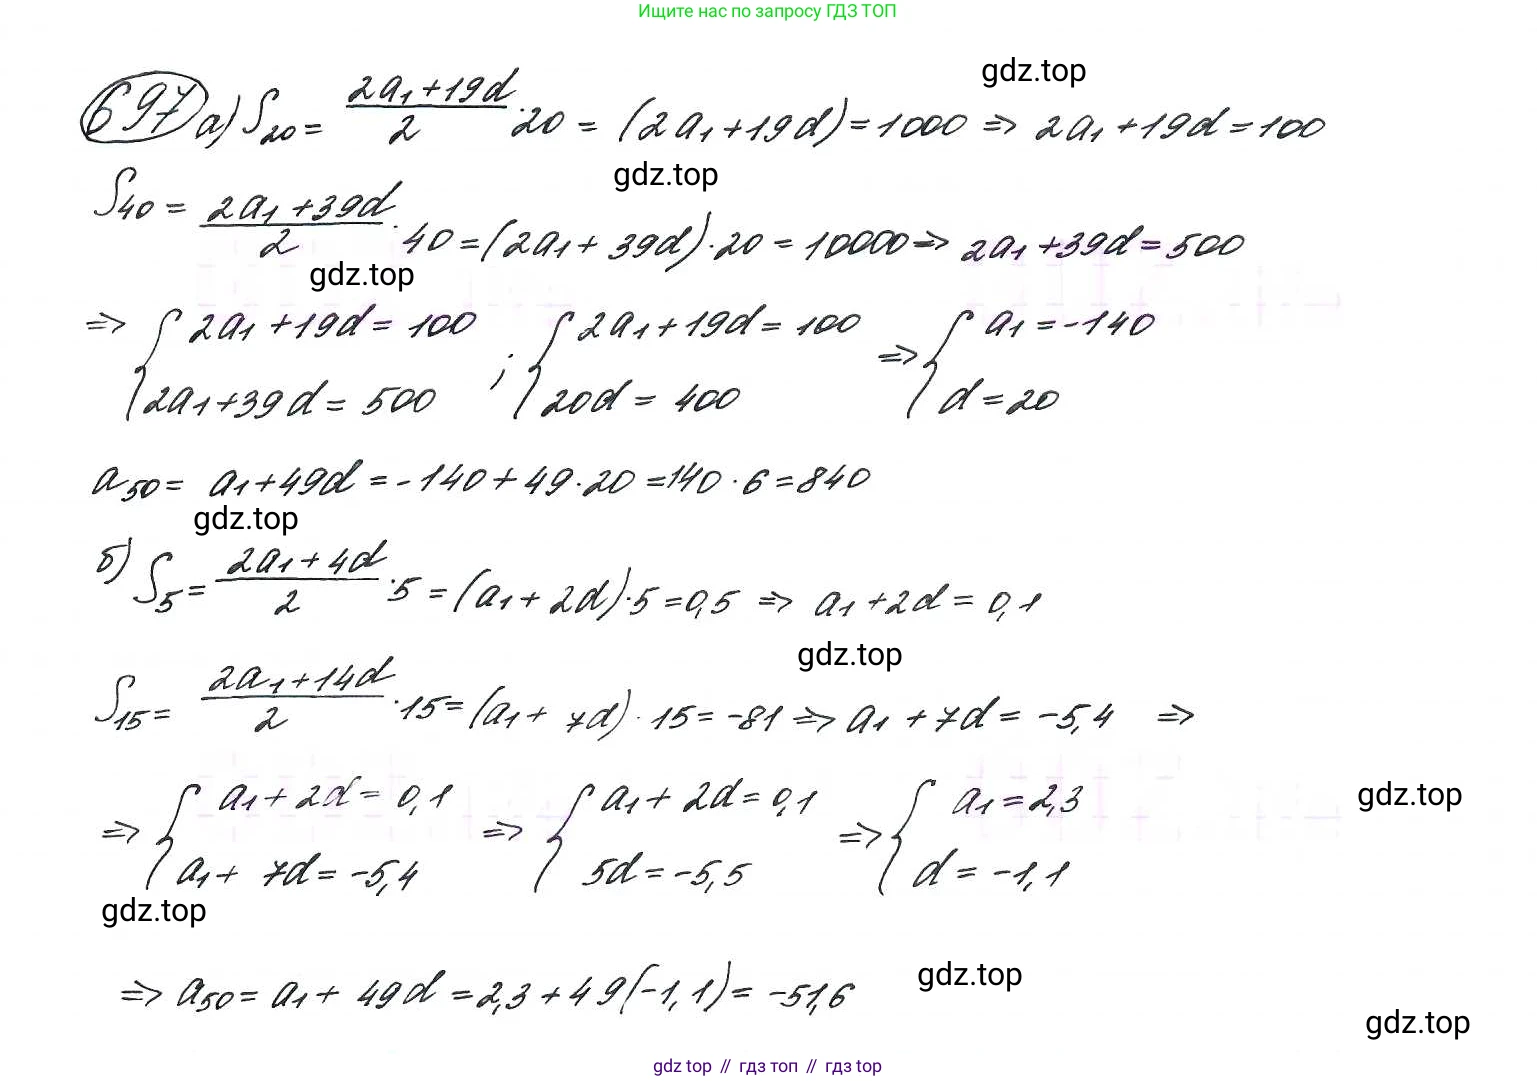 Ищите нас по запросу ГДЗ ТОП
gdz.top
697 а) S₂₀ = (2a₁+19d)/2 · 20 = (2a₁+19d) = 1000 => 2a₁+19d = 100
gdz.top
S₄₀ = (2a₁+39d)/2 · 40 = (2a₁+39d)·20 = 10000 => 2a₁+39d = 500
gdz.top
=> { 2a₁+19d = 100 ; { 2a₁+19d = 100 => { a₁ = -140
2a₁+39d = 500 20d = 400 d = 20
a₅₀ = a₁+49d = -140+49·20 = 140·6 = 840
gdz.top
б) S₅ = (2a₁+4d)/2 · 5 = (a₁+2d)·5 = 0,5 => a₁+2d = 0,1
gdz.top
S₁₅ = (2a₁+14d)/2 · 15 = (a₁+7d)·15 = -81 => a₁+7d = -5,4 =>
=> { a₁+2d = 0,1 => { a₁+2d = 0,1 => { a₁ = 2,3
gdz.top
a₁+7d = -5,4 5d = -5,5 d = -1,1
gdz.top
=> a₅₀ = a₁+49d = 2,3+49(-1,1) = -51,6
gdz.top
gdz.top
gdz top // гдз топ // gdz top